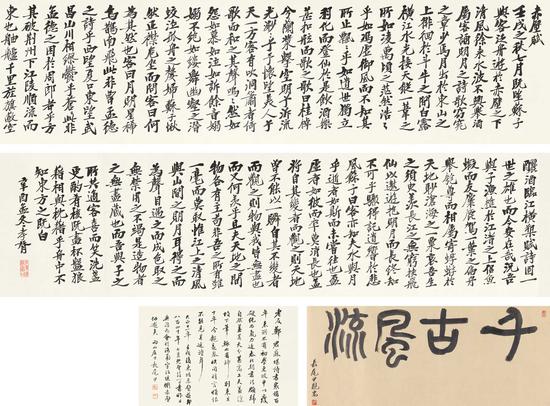 赤壁賦
壬戌之秋七月既望蘇子
與客泛舟游於赤壁之下
清風徐來水波不興舉酒
屬客誦明月之詩歌窈窕
之章少焉月出於東山之
上徘徊於斗牛之間白露
橫江水光接天縱一葦之
所如凌萬頃之茫然浩浩
乎如馮虛御風而不知其
所止飄飄乎如遺世獨立
羽化而登仙於是飲酒樂
甚扣舷而歌之歌曰桂棹
兮蘭槳擊空明兮泝流
光渺渺兮予懷望美人兮
天一方客有吹洞簫者倚
歌而和之其聲嗚嗚然如
怨如慕如泣如訴餘音嫋
嫋不絕如縷舞幽壑之潛
蛟泣孤舟之嫠婦蘇子愀
然正襟危坐而問客曰何
為其然也客曰月明星稀
烏鵲南飛此非曹孟德
之詩乎西望夏口東望武
昌山川相繆鬱乎蒼蒼此非
孟德之困於周郎者乎方
其破荊州下江陵順流而
東也舳艫千里旌旗蔽空
釃酒臨江橫槊賦詩固一
世之雄也而今安在哉況吾
與子漁樵於江渚之上侶魚
蝦而友麋鹿駕一葉之扁舟
舉匏尊而相屬寄蜉蝣於
天地眇滄海之一粟哀吾生
之須臾羨長江之無窮挾飛
仙以遨遊抱明月而長終知
不可乎驟得託遺響於悲
風蘇子曰客亦知夫水與月
乎逝者如斯而未嘗往也盈
虛者如彼而卒莫消長也蓋
將自其變者而觀之則天
地曾不能以一瞬自其不變者
而觀之則物與我皆無盡也
而又何羨乎且夫天地之間
物各有主苟非吾之所有雖
一毫而莫取惟江上之清風
與山間之明月耳得之而
為聲目遇之而成色取之
無禁用之不竭是造物者
之無盡藏也而吾與子之
所共適客喜而笑洗盞
更酌肴核既盡杯盤狼
藉相與枕藉乎舟中不
知東方之既白
辛酉孟冬
千古風流